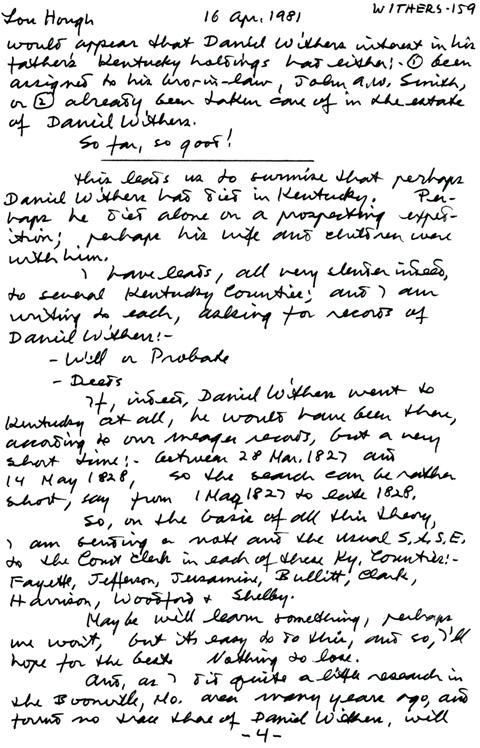 Lou Hough 16 Apr, 1981 WITHERS-159
would appear that Daniel Withers interest in his
father's Kentucky holdings had either:- ① been
assigned to his bro-in-law, John A.W. Smith,
or ② already been taken care of in the estate
of Daniel Withers.
So far, so good!
This leads us to surmise that perhaps
Daniel Withers had died in Kentucky. Per-
haps he died alone on a prospecting exped-
ition; perhaps his wife and children were
with him.
I have leads, all very slender indeed,
to several Kentucky Counties; and I am
writing to each, asking for records of
Daniel Withers:-
- Will or Probate
- Deeds
If, indeed, Daniel Withers went to
Kentucky at all, he would have been there,
according to our meager records, but a very
short time:- between 28 Mar. 1827 and
14 May 1828, so the search can be rather
short, say from 1 Mar 1827 to late 1828.
So, on the basis of all this theory,
I am sending a note and the usual S.A.S.E.
to the Court Clerk in each of these Ky. Counties:-
Fayette, Jefferson, Jessamine, Bullitt, Clark,
Harrison, Woodford & Shelby.
Maybe will learn something, perhaps
we won't, but its easy to do this, and so, I'll
hope for the best. Nothing to lose.
And, as I did quite a little research in
the Boonville, Mo. area many years ago, and
found no trace there of Daniel Withers, will
-4-